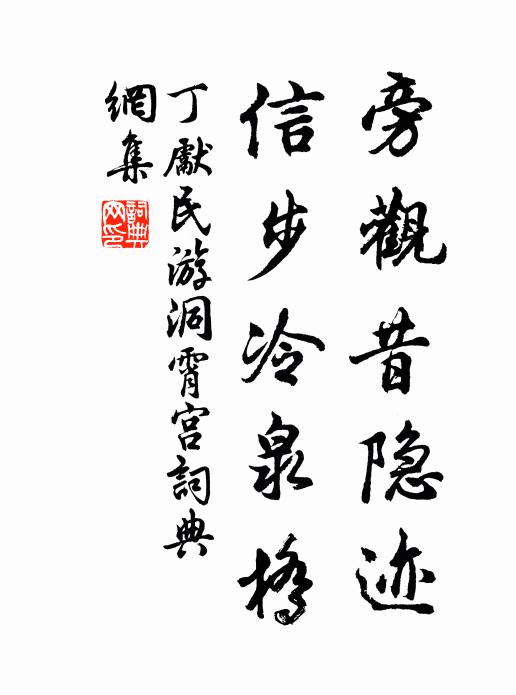 旁觀昔隐迹
信步冷泉橋
丁獻民游洞霄宫詞典
網集
詞典
网印